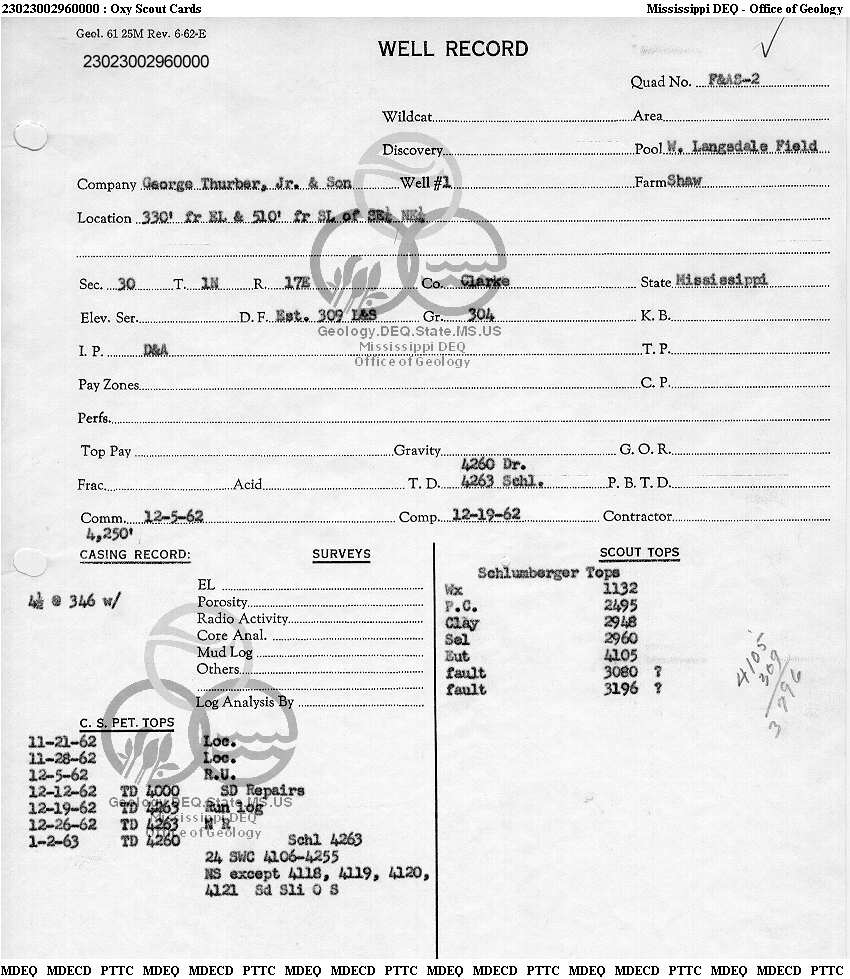 23023002960000 : Oxy Scout Cards Mississippi DEQ - Office of Geology
Geol. 61 25M Rev. 6-62-E
WELL RECORD
23023002960000
Quad No. F&AS-2
Wildcat Area
Discovery Pool W. Langsdale Field
Company George Thurber, Jr. & Son Well #1 Farm Shaw
Location 330' fr EL & 510' fr SL of SE¼ NE¼
Sec. 30 T. 1N R. 17E Co. Clarke State Mississippi
Elev. Ser. D. F. Est. 309 L&S Gr. 304 K. B.
Geology.DEQ.State.MS.US
I. P. D&A Mississippi DEQ T. P.
Office of Geology
Pay Zones C. P.
Perfs.
Top Pay Gravity G. O. R.
4260 Dr.
Frac. Acid T. D. 4263 Schl. P. B. T. D.
Comm. 12-5-62 Comp. 12-19-62 Contractor
4,250'
CASING RECORD: SURVEYS SCOUT TOPS
Schlumberger Tops
EL
4½ @ 346 w/ Porosity
Radio Activity
Core Anal.
Mud Log
Others
Log Analysis By
Wx 1132
P.C. 2495
Clay 2948
Sel 2960
Eut 4105
fault 3080 ?
fault 3196 ?
4105
309
3796
C. S. PET. TOPS
11-21-62 Loc.
11-28-62 Loc.
12-5-62 R.U.
12-12-62 TD 4000 SD Repairs
Geology.DEQ.State.MS.US
12-19-62 TD 4263 Run log
Mississippi DEQ
12-26-62 TD 4263 N R
Office of Geology
1-2-63 TD 4260 Schl 4263
24 SWC 4106-4255
NS except 4118, 4119, 4120,
4121 Sd Sli O S
MDEQ MDECD PTTC MDEQ MDECD PTTC MDEQ MDECD PTTC MDEQ MDECD PTTC MDEQ MDECD PTTC MDEQ MDECD PTTC